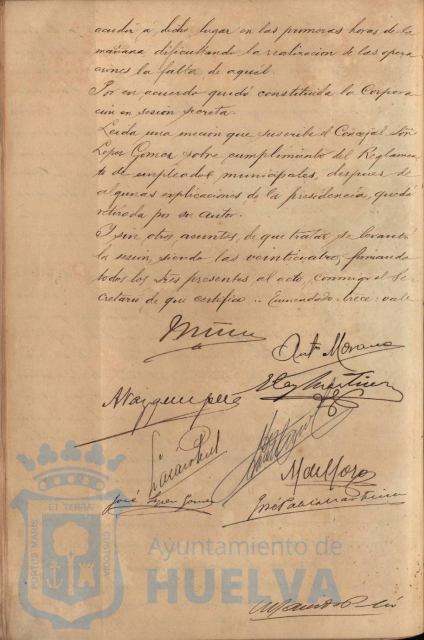 acudir á dicho lugar en las primeras horas de la
mañana dificultando la realizacion de las opera
ciones la falta de aquél.
Por en acuerdo quedó constituida la Corpora
ción en sesión secreta.
Leida una moción que suscribe el Concejal Sôr
Lopez Gomez sobre cumplimiento del Reglamen
to de empleados municipales, despues de
algunas esplicaciones de la presidencia, quedó
retirada por su autor.
Y sin otros asuntos de que tratar se levantó
la sesión, siendo las veinticuatro, firmando
todos los Sres presentes al acto, conmigo el Se
cretario de que certifico.. Enmendado: trece: vale
Antº Moreno
Eloy Martinez
M Vazquez
M de Mora
José Lopez Gomez
José Pablo Martinez
PORTUS MARIS ET TERRÆ CUSTODIA
Ayuntamiento de
HUELVA